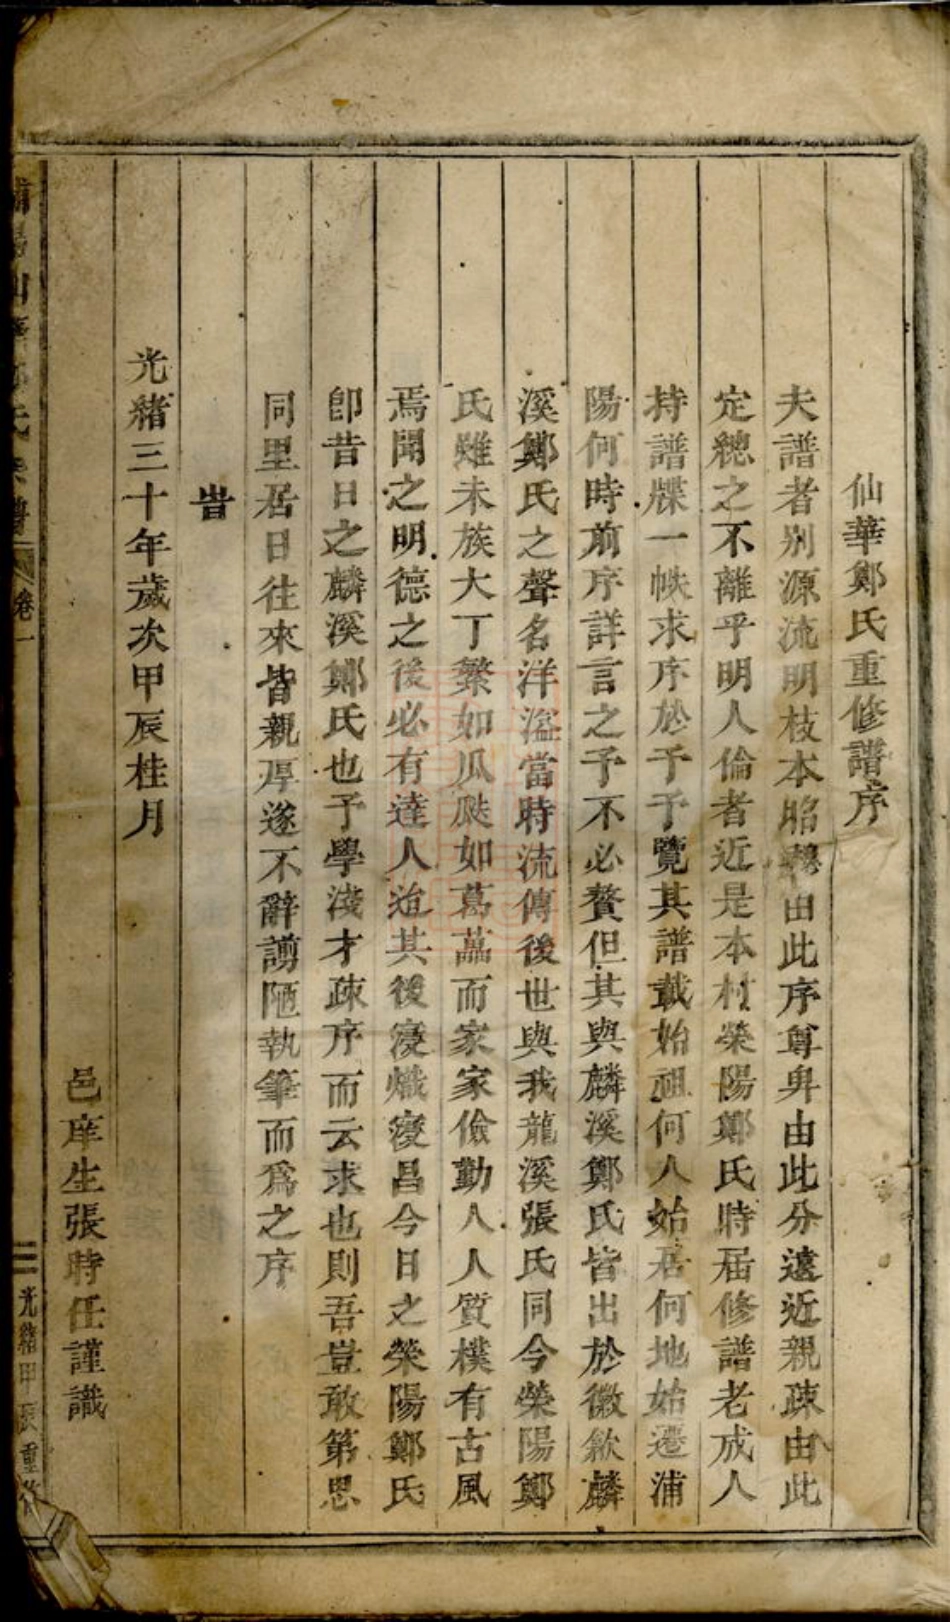 仙華鄭氏重修譜序
夫譜者别源流明枝本昭穆由此序尊卑由此分遠近親疎由此
定總之不離乎明人倫者近是本村榮陽鄭氏時届修譜老成人
持譜牒一帙求序於予予覽其譜載始祖何人始居何地始遷浦
陽何時前序詳言之予不必贅但其與麟溪鄭氏皆出於徽歙麟
溪鄭氏之聲名洋溢當時流傳後世與我龍溪張氏同今榮陽鄭
氏雖未族大丁繁如瓜瓞如葛藟而家家儉勤人人質樸有古風
焉聞之明德之後必有達人迨其後寖熾寖昌今日之榮陽鄭氏
卽昔日之麟溪鄭氏也予學淺才疎序而云求也則吾豈敢第思
同里居日往來皆親厚遂不辭謭陋執筆而爲之序
旹
光緒三十年歲次甲辰桂月
邑庠生張時任謹識
浦陽仙華鄭氏宗譜 卷一 二 光緒甲辰重修